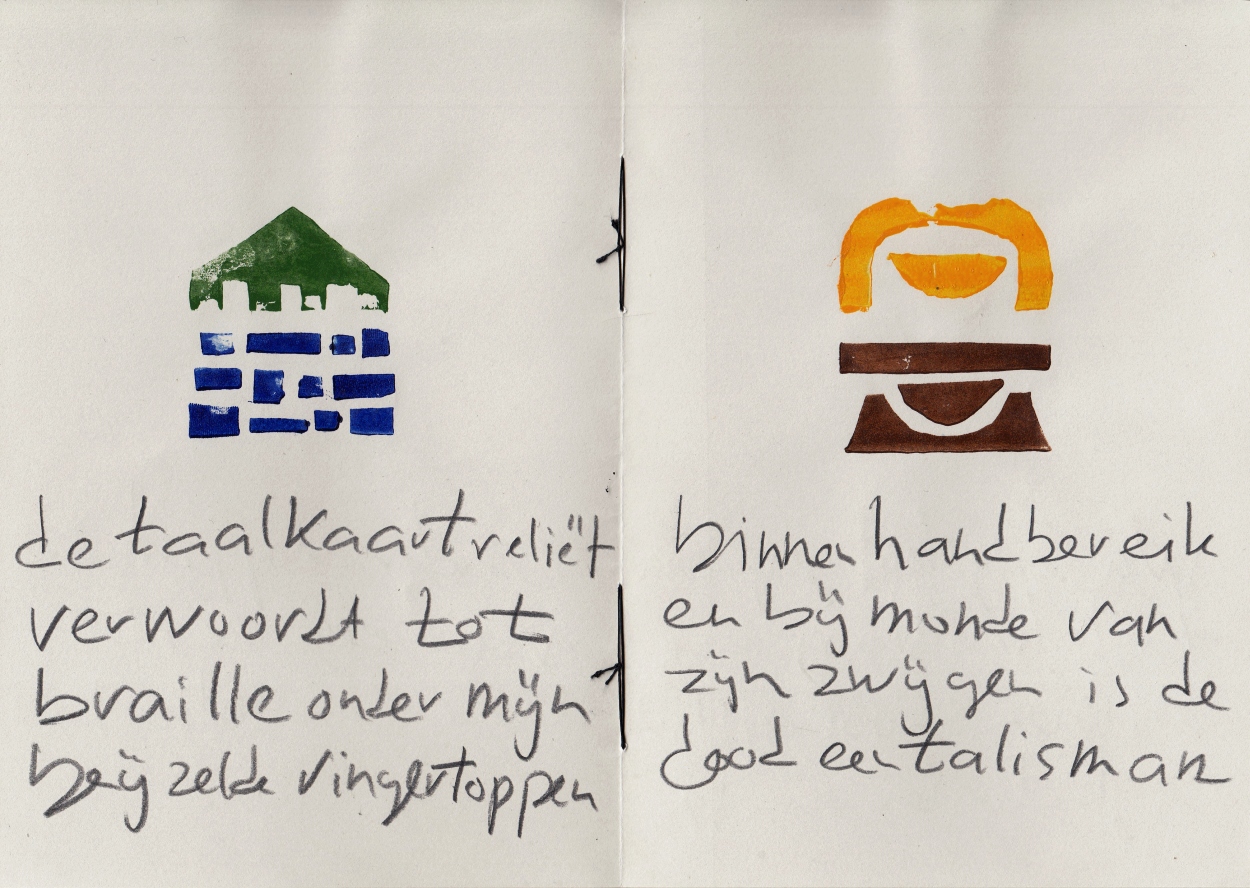 de taalkaartreliëf
verwoordt tot
braille onder mijn
beijzelde vingertoppen
binnen handbereik
en bij monde van
zijn zwijgen is de
dood een talisman